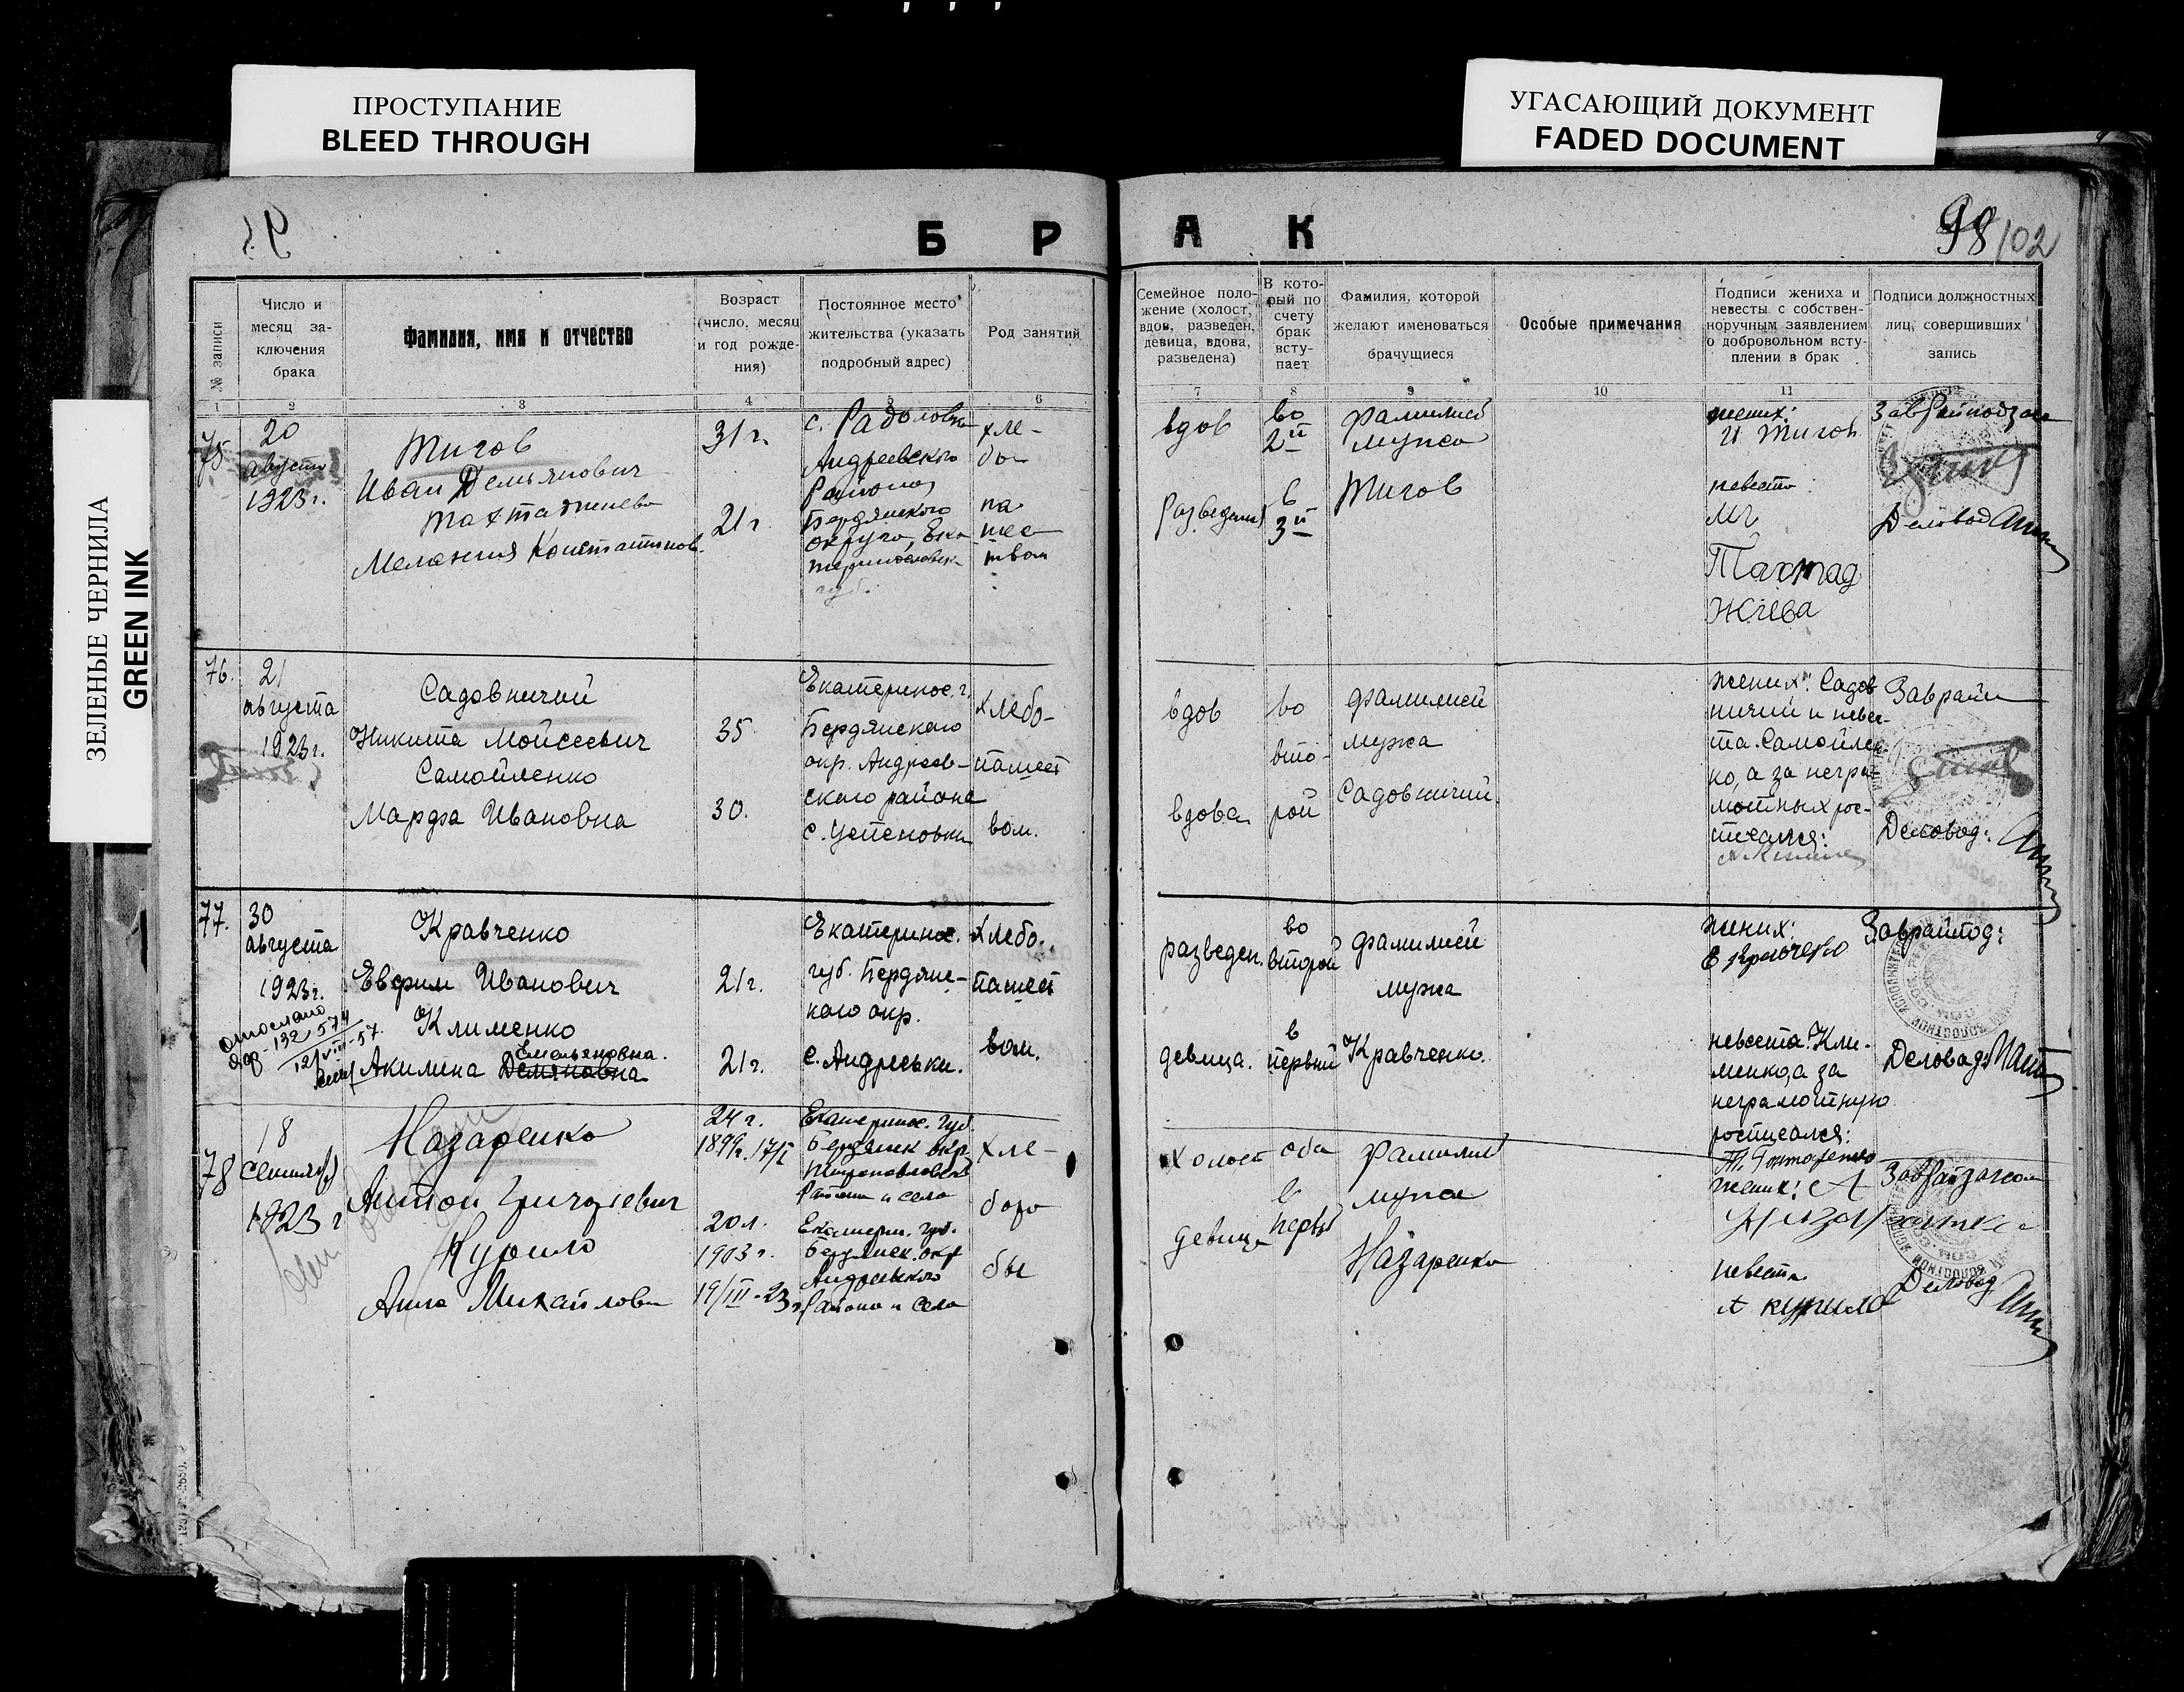 ПРОСТУПАНИЕ
BLEED THROUGH
УГАСАЮЩИЙ ДОКУМЕНТ
FADED DOCUMENT
ЗЕЛЕНЫЕ ЧЕРНИЛА
GREEN INK
Б Р А К
98/102
№ записи
Число и
месяц за-
ключения
брака
Фамилия, имя и отчество
Возраст
(число, месяц
и год рожде-
ния)
Постоянное место
жительства (указать
подробный адрес)
Род занятий
Семейное поло-
жение (холост,
вдов, разведен,
девица, вдова,
разведена)
В кото-
рый по
счету
брак
всту-
пает
Фамилия, которой
желают именоваться
брачущиеся
Особые примечания
Подписи жениха и
невесты с собствен-
норучным заявлением
о добровольном всту-
плении в брак
Подписи должностных
лиц, совершивших
запись
1 2 3 4 5 6 7 8 9 10 11 12
75
20
августа
1923 г.
Тигов
Иван Демьянович
Мелания
31 г.
21 г
с. Радоловка
Андреевского
Района
Бердянского
округа, Ека
губ.
хле-
бо-
па-
шес
твом
вдов
во
2й
в
3й
фамилией
мужа
Тигов
жених:
И Тигов
невеста:
Тахтад
жиева
Деловод
76.
21
августа
1923г.
Садовничий
Никита Мойсеевич
Самойленко
Марфа Ивановна
35
30.
Екатеринос. г.
Бердянского
окр. Андреев-
ского района
с. Успеновки
хлебо-
пашест
вом.
вдов
вдова
во
вто-
рой
фамилией
мужа
Садовничий
жених: Садов
ничий и невес-
та. Самойлен-
ко, а за негра-
мотных рос-
писался:
Заврайп
Деловод:
77.
30
августа
1923г.
отослано
12/VIII-57
Кравченко
Евфим Иванович
Клименко
Емельяновна.
Акилина Демяновна
21г.
21г.
Екатеринос.
губ. Бердянс-
кого окр.
с. Андреевки.
Хлебо-
пашест
вом.
разведен.
девица.
во
второй
в
первый
фамилией
мужа
Кравченко.
жених:
невеста: Кли-
менко, а за
неграмотную
росписался:
Заврайпод:
Деловод:
78
18
сентября
1923 г
Назаренко
Антон Григориевич
Курило
Анна Михайловна
24 г.
1899г. 17/I
20 л.
1903 г.
19/III-23г
Екатеринос. губ.
Бердянск окр.
Района и села
Екатерин. губ.
Бердянск. окр
Андреевского
Района и села
хле-
боро
бы
холост
девица
оба
в
первый
фамилией
мужа
Назаренко
жених: А
невеста
А курило
Деловод